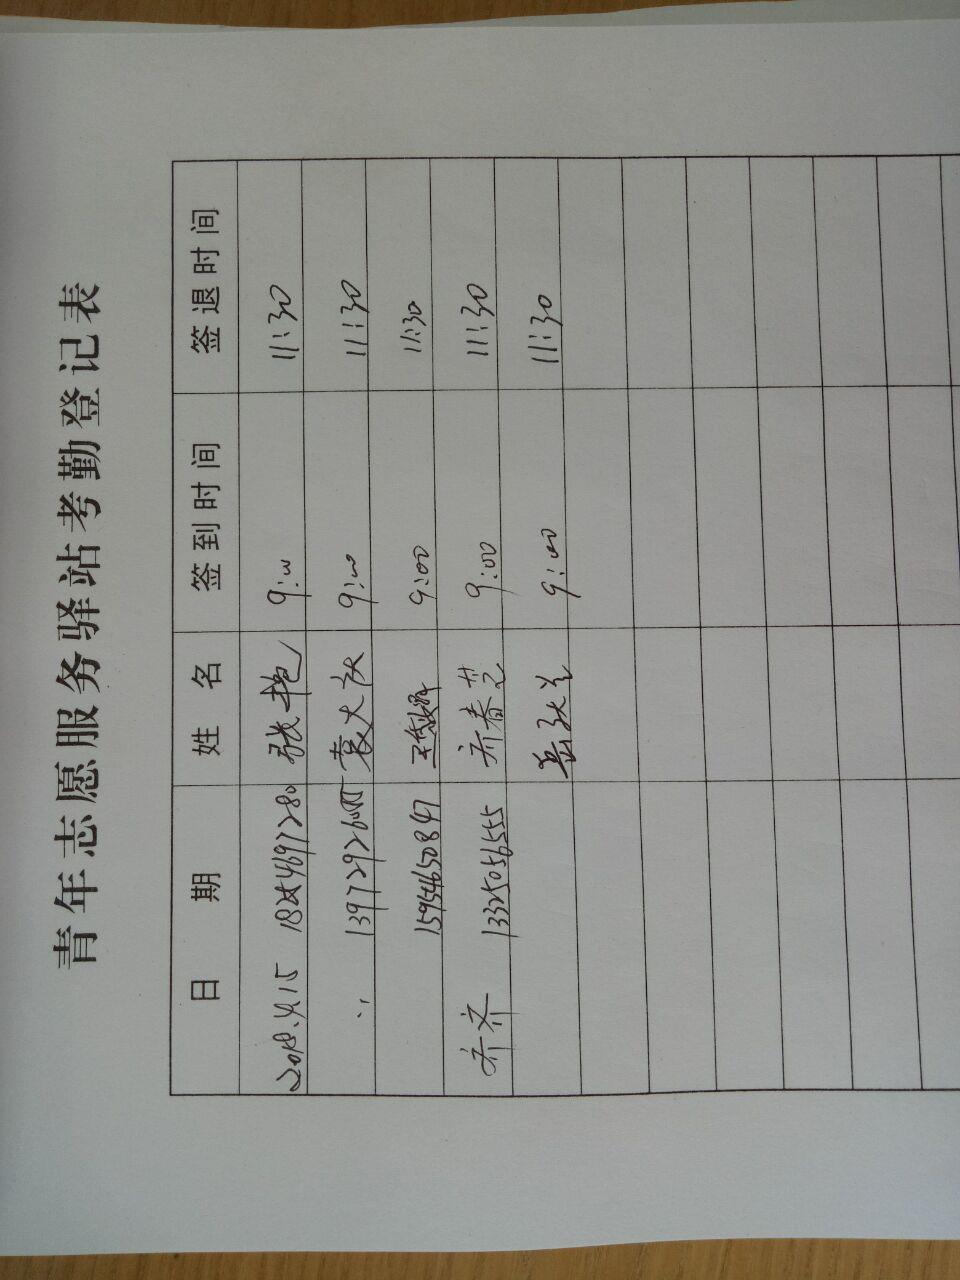 青年志愿服务驿站考勤登记表
日 期 姓 名 签到时间 签退时间
2018.4.15 张艳 9:00 11:30
袁大 9:00 11:30
15954650847 9:00 11:30
乔齐 13325056555 乔春芝 9:00 11:30
9:00 11:30